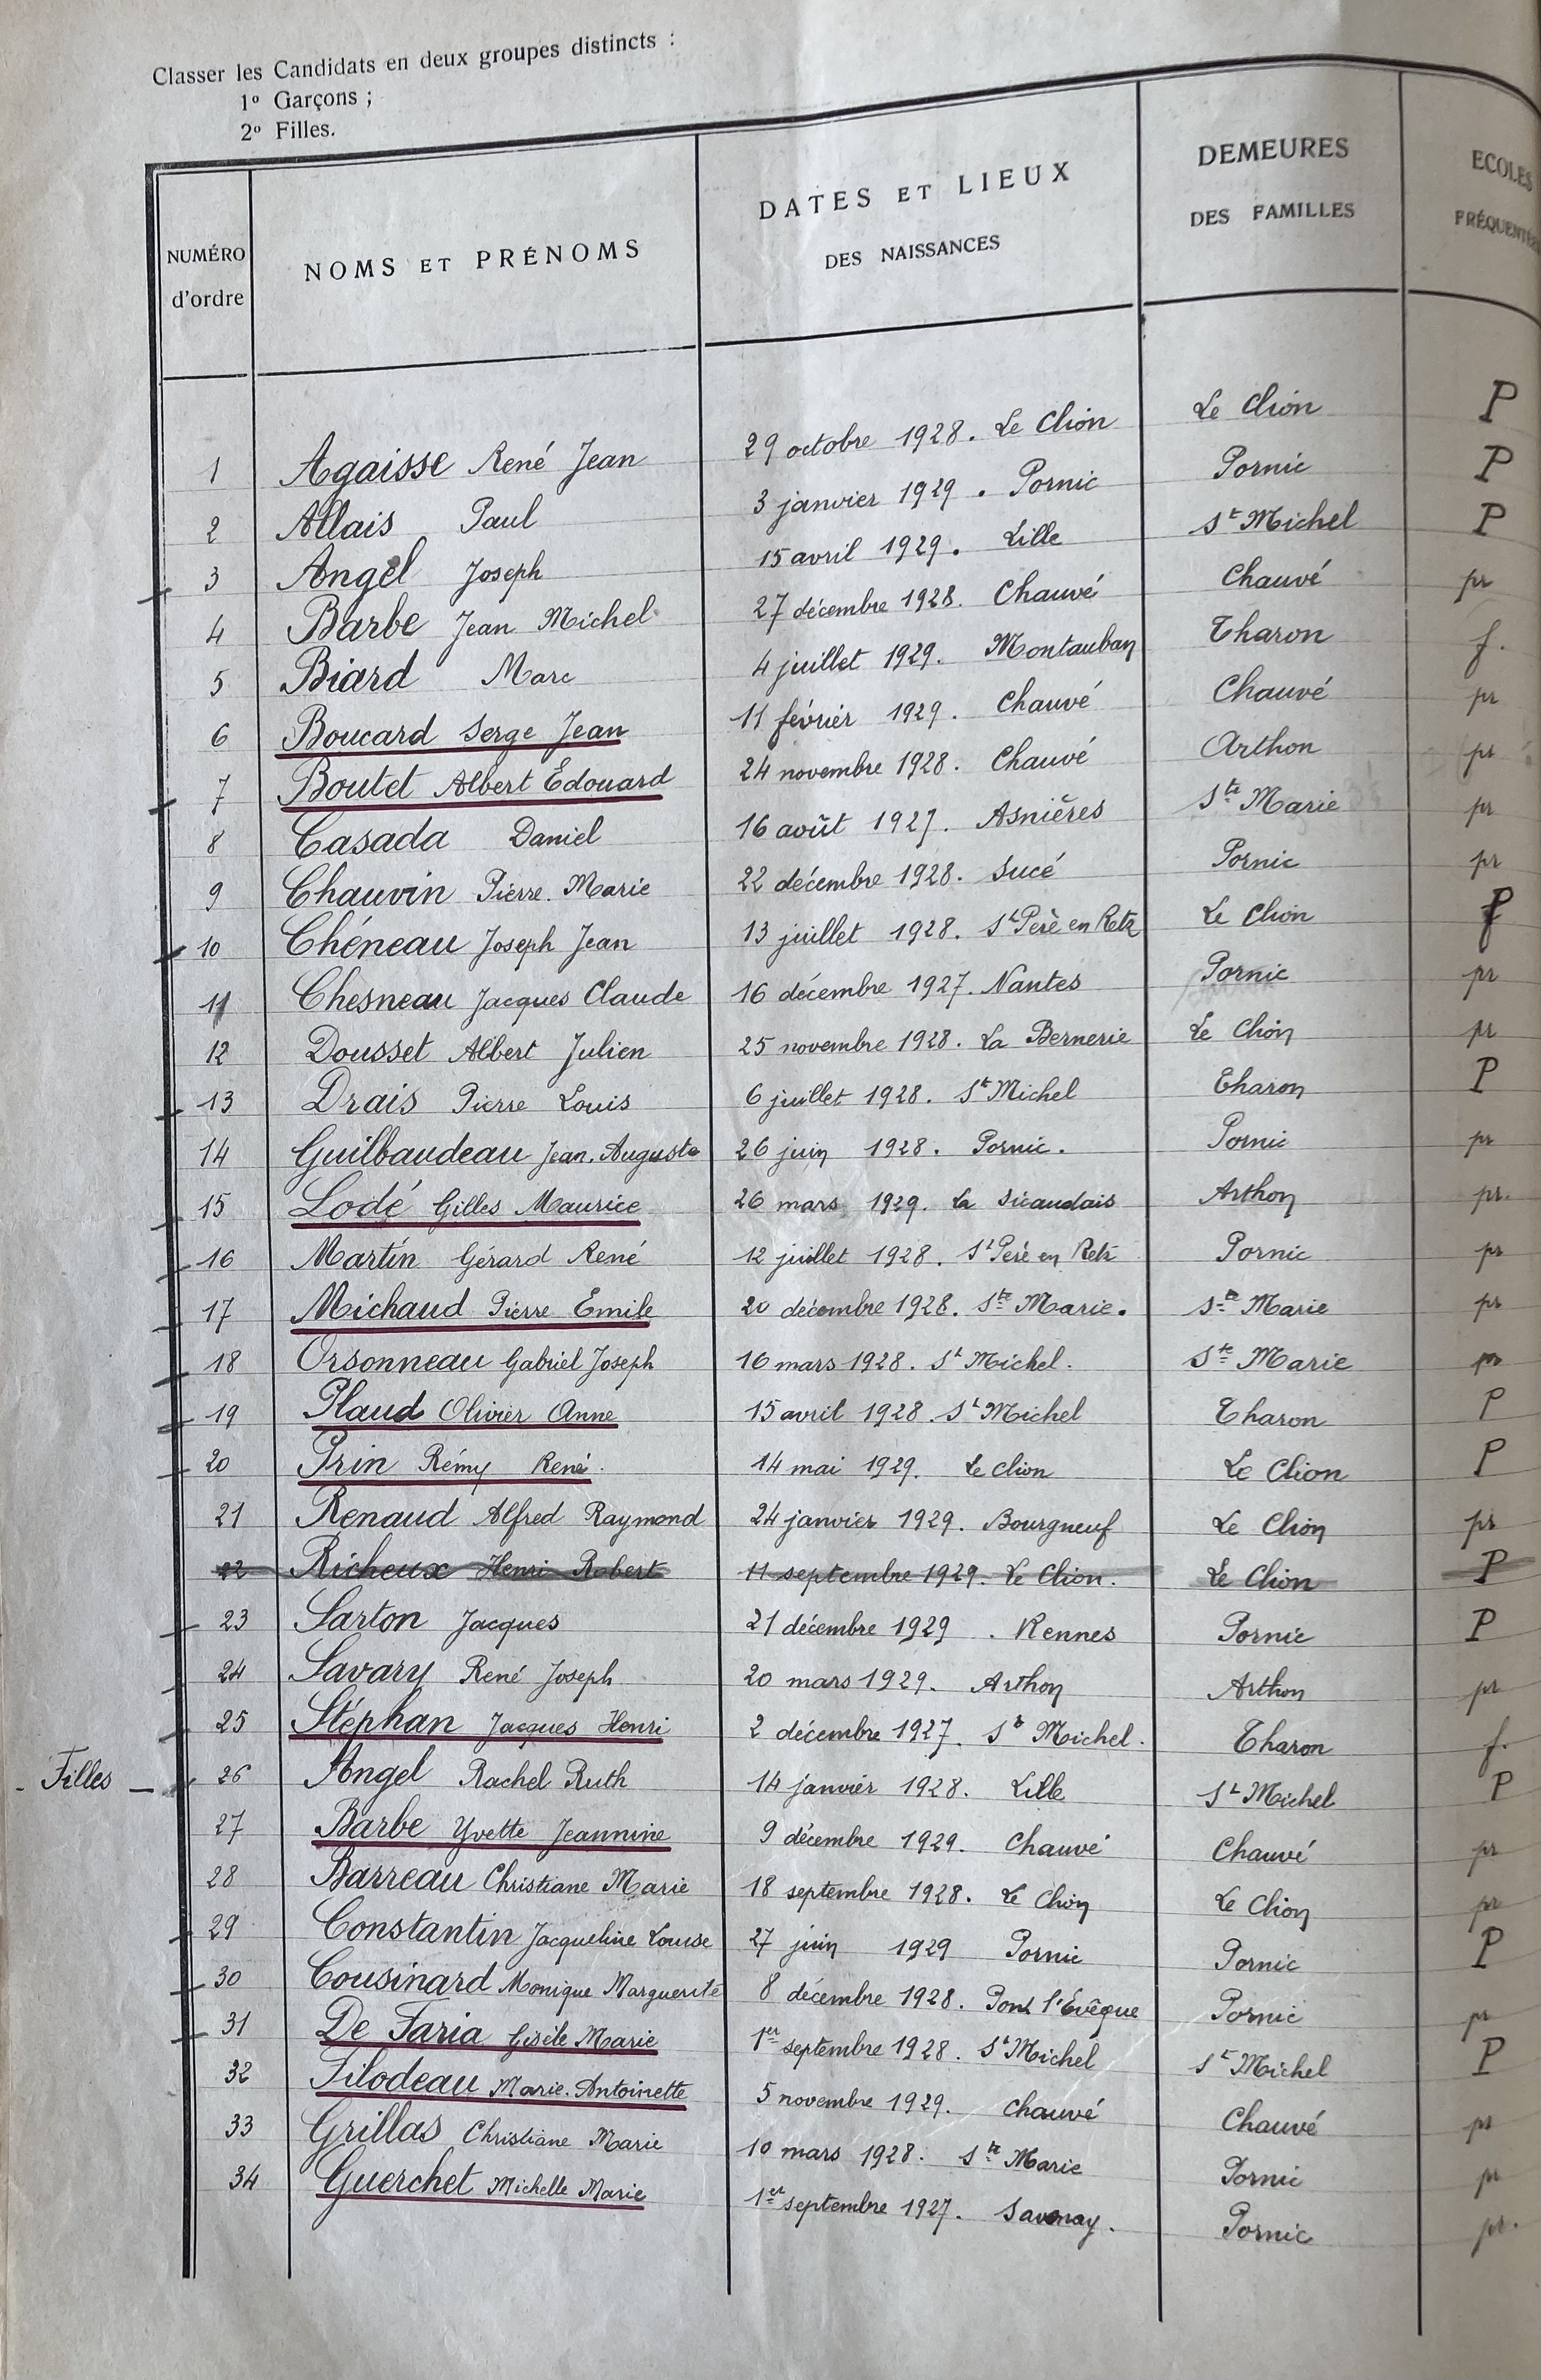 Classer les Candidats en deux groupes distincts :
1º Garçons ;
2º Filles.
NUMÉRO d'ordre NOMS ET PRÉNOMS DATES ET LIEUX DES NAISSANCES DEMEURES DES FAMILLES ECOLES FRÉQUENTÉES
1 Agaisse René Jean 29 octobre 1928. Le Clion Le Clion P
2 Allais Paul 3 janvier 1929. Pornic Pornic P
3 Angel Joseph 15 avril 1929. Lille St Michel P
4 Barbe Jean Michel 27 décembre 1928. Chauvé Chauvé pr
5 Biard Marc 4 juillet 1929. Montauban Tharon f.
6 Boucard Serge Jean 11 février 1929. Chauvé Chauvé pr
7 Boutet Albert Édouard 24 novembre 1928. Chauvé Arthon pr
8 Casada Daniel 16 août 1927. Asnières Ste Marie pr
9 Chauvin Pierre. Marie 22 décembre 1928. Sucé Pornic pr
10 Chéneau Joseph Jean 13 juillet 1928. St Père en Retz Le Clion P
11 Chesneau Jacques Claude 16 décembre 1927. Nantes Pornic pr
12 Dousset Albert Julien 25 novembre 1928. La Bernerie Le Clion pr
13 Drais Pierre Louis 6 juillet 1928. St Michel Tharon P
14 Guilbaudeau Jean. Auguste 26 juin 1928. Pornic. Pornic pr
15 Lodé Gilles Maurice 26 mars 1929. La Sicaudais Arthon pr.
16 Martin Gérard René 12 juillet 1928. St Père en Retz Pornic pr
17 Michaud Pierre Emile 20 décembre 1928. Ste Marie. Ste Marie pr
18 Orsonneau Gabriel Joseph 16 mars 1928. St Michel. Ste Marie pr
19 Plaud Olivier Anne 15 avril 1928. St Michel Tharon P
20 Prin Rémy René. 14 mai 1929. Le Clion Le Clion P
21 Renaud Alfred Raymond 24 janvier 1929. Bourgneuf Le Clion pr
22 Richeux Henri Robert 11 septembre 1929. Le Clion. Le Clion P
23 Sarton Jacques 21 décembre 1929. Rennes Pornic P
24 Savary René Joseph 20 mars 1929. Arthon Arthon pr
25 Stéphan Jacques Henri 2 décembre 1927. St Michel. Tharon f.
- Filles - 26 Angel Rachel Ruth 14 janvier 1928. Lille St Michel P
27 Barbe Yvette Jeannine 9 décembre 1929. Chauvé Chauvé pr
28 Barreau Christiane Marie 18 septembre 1928. Le Clion Le Clion pr
29 Constantin Jacqueline Louise 27 juin 1929 Pornic Pornic P
30 Cousinard Monique Marguerite 8 décembre 1928. Pont l'Évêque Pornic pr
31 De Faria Gisèle Marie 1er septembre 1928. St Michel St Michel P
32 Filodeau Marie. Antoinette 5 novembre 1929. Chauvé Chauvé pr
33 Grillas Christiane Marie 10 mars 1928. Ste Marie Pornic pr
34 Guerchet Michelle Marie 1er septembre 1927. Savenay. Pornic pr.